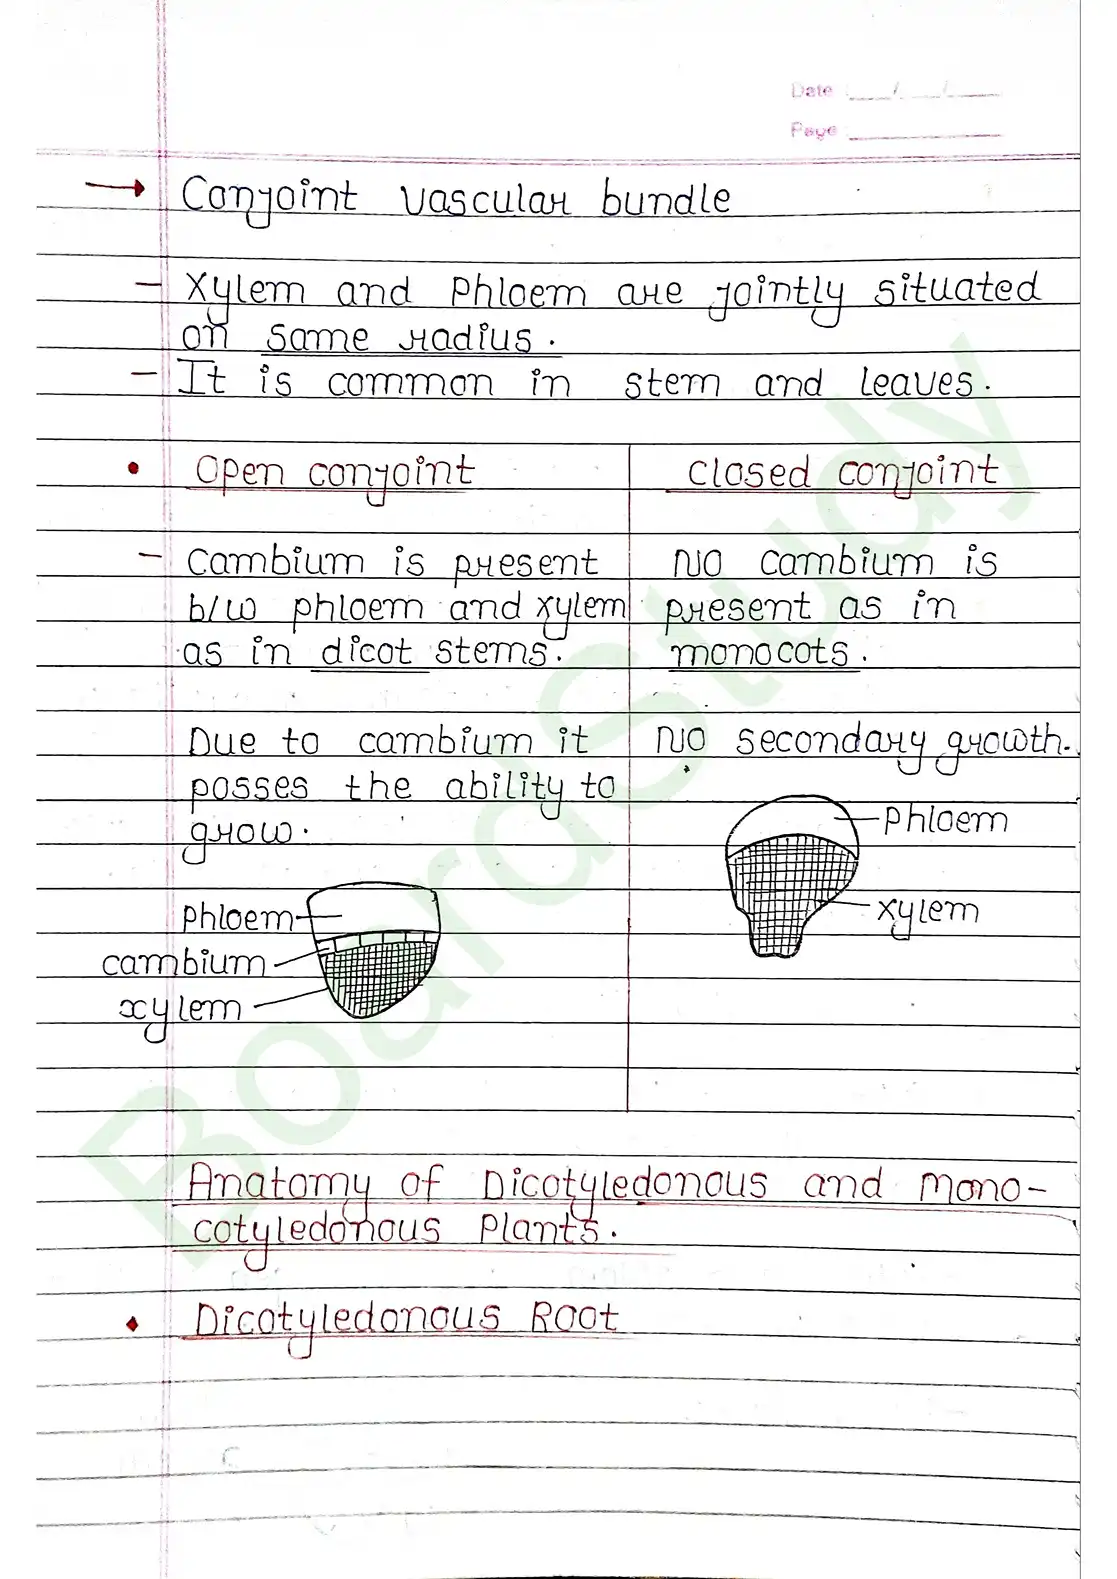 Date : __/__/__
Page : ______
→ Conjoint vascular bundle
- Xylem and Phloem are jointly situated
on same radius.
- It is common in stem and leaves.
• Open conjoint
- Cambium is present
b/w phloem and xylem
as in dicot stems.
Due to cambium it
posses the ability to
grow.
phloem
cambium
xylem
Closed conjoint
NO cambium is
present as in
monocots.
NO secondary growth.
Phloem
xylem
Anatomy of Dicotyledonous and Mono-
cotyledonous Plants.
• Dicotyledonous Root
BoardStudy